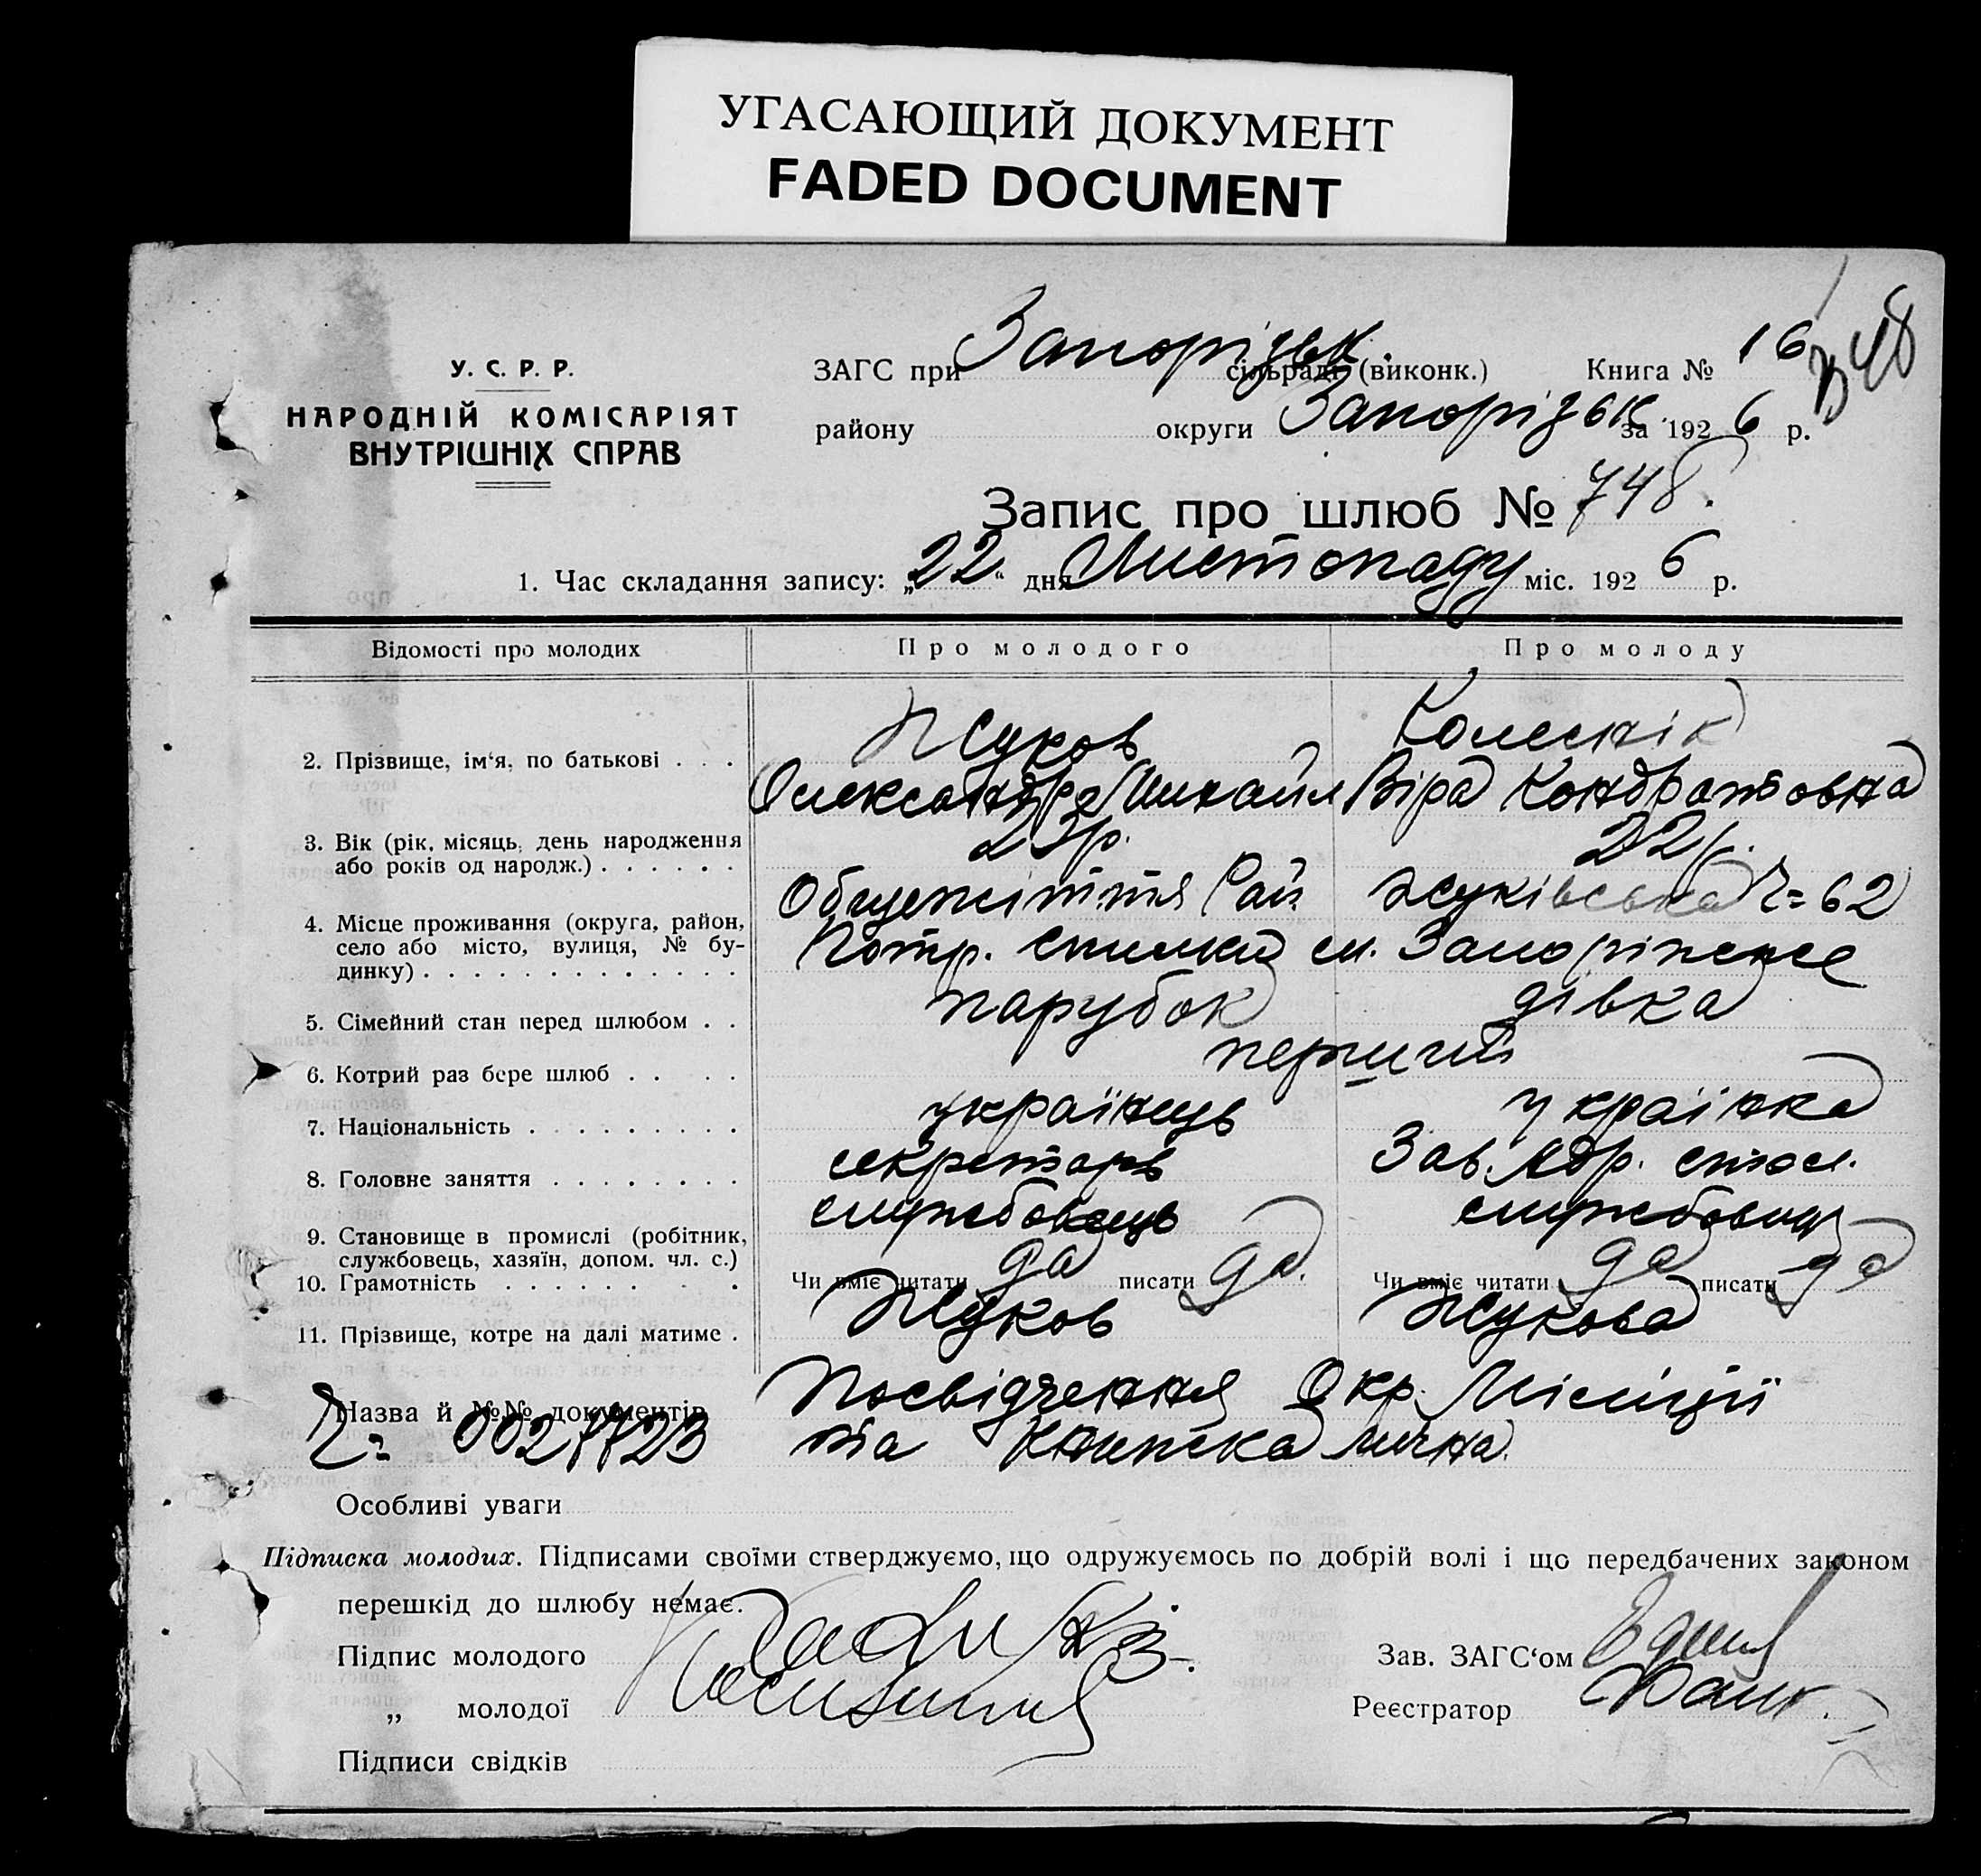 УГАСАЮЩИЙ ДОКУМЕНТ
FADED DOCUMENT
У. С. Р. Р.
НАРОДНІЙ КОМІСАРІЯТ
ВНУТРІШНІХ СПРАВ
ЗАГС при Запорізьк. сільраді (виконк.) Книга № 16
району округи Запорізьк. за 1926 р.
Запис про шлюб № 748.
1. Час складання запису: „22“ дня Листопаду міс. 1926 р.
Відомості про молодих Про молодого Про молоду
Жуков Колеснік
2. Прізвище, ім‘я, по батькові . . . Олександр Михайл Віра Кондратовна
3. Вік (рік, місяць, день народження 23р. 22р.
або років од народж.) . . . . . .
4. Місце проживання (округа, район, Общежіття Рай Жуківська 62
село або місто, вулиця, № бу- Потр. спилки м. Запоріжже
динку) . . . . . . . . . . . . . .
5. Сімейний стан перед шлюбом . . парубок дівка
6. Котрий раз бере шлюб . . . . перший
7. Національність . . . . . . . . . українець українка
8. Головне заняття . . . . . . . . секретарь Зав. стол.
9. Становище в промислі (робітник, службовець службовиця
службовець, хазяїн, допом. чл. с.)
10. Грамотність . . . . . . . Чи вміє читати да писати да. Чи вміє читати да писати да
11. Прізвище, котре на далі матиме . Жуков Жукова
Назва й №№ документів Посвідчення Окр. Міліції
та Книжка лична.
Особливі уваги
Підписка молодих. Підписами своїми стверджуємо, що одружуємось по добрій волі і що передбачених законом
перешкід до шлюбу немає.
Підпис молодого Зав. ЗАГС‘ом
„ молодої Реєстратор
Підписи свідків